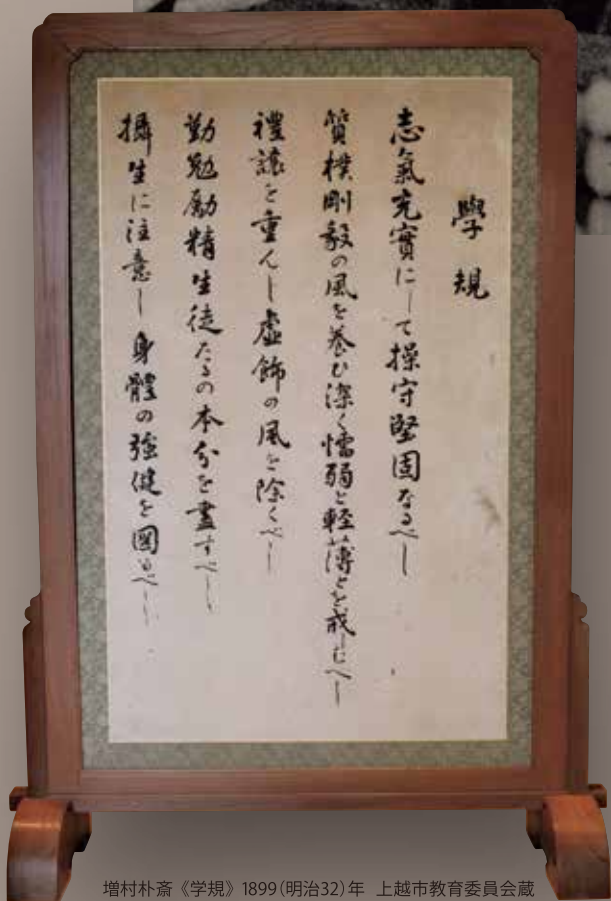 學規
志氣充實にして操守堅固なるべし
質樸剛毅の風を養ひ深く懦弱と軽薄とを戒むへし
禮譲を重んし虚飾の風を除くべし
勤勉励精生徒たるの本分を盡すべし
攝生に注意し身體の強健を圖るべし
増村朴斎《学規》1899(明治32)年 上越市教育委員会蔵